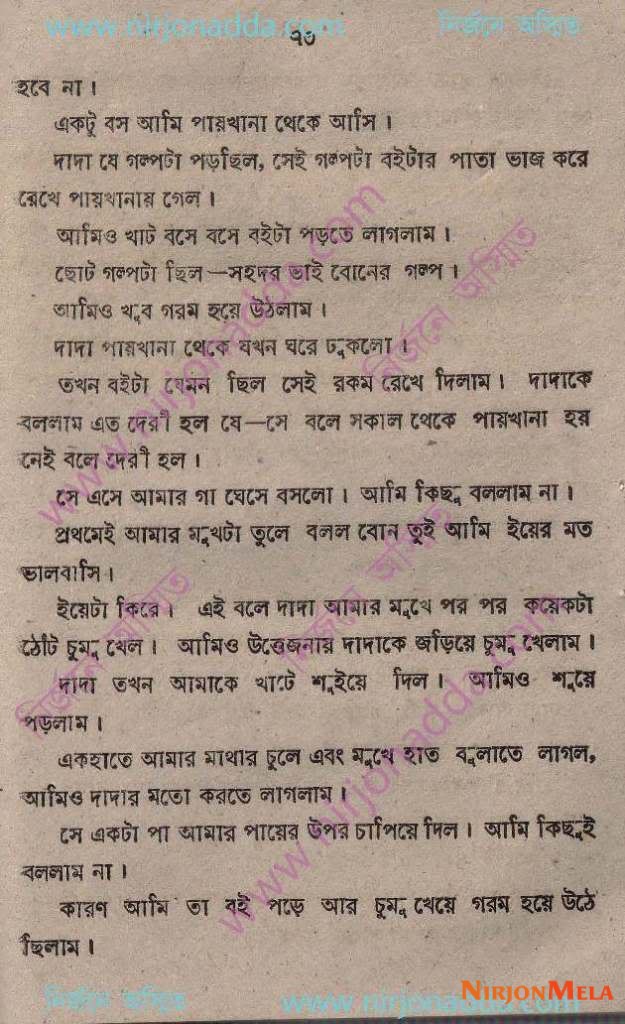 www.nirjonadda.com নির্জনে অস্মিত
৭৩
হবে না।
একটু বস আমি পায়খানা থেকে আসি।
দাদা যে গল্পটা পড়ছিল, সেই গল্পটা বইটার পাতা ভাজ করে
রেখে পায়খানায় গেল।
আমিও খাট বসে বসে বইটা পড়তে লাগলাম।
ছোট গল্পটা ছিল—সহদর ভাই বোনের গল্প।
আমিও খুব গরম হয়ে উঠলাম।
দাদা পায়খানা থেকে যখন ঘরে ঢুকলো।
তখন বইটা যেমন ছিল সেই রকম রেখে দিলাম। দাদাকে
বললাম এত দেরী হল যে—সে বলে সকাল থেকে পায়খানা হয়
নেই বলে দেরী হল।
সে এসে আমার গা ঘেসে বসলো। আমি কিছু বললাম না।
প্রথমেই আমার মুখটা তুলে বলল বোন তুই আমি ইয়ের মত
ভালবাসি।
ইয়েটা কিরে। এই বলে দাদা আমার মুখে পর পর কয়েকটা
ঠোঁট চুমু খেল। আমিও উত্তেজনার দাদাকে জড়িয়ে চুমু খেলাম।
দাদা তখন আমাকে খাটে শুইয়ে দিল। আমিও শুয়ে
পড়লাম।
একহাতে আমার মাথার চুলে এবং মুখে হাত বুলাতে লাগল,
আমিও দাদার মতো করতে লাগলাম।
সে একটা পা আমার পায়ের উপর চাপিয়ে দিল। আমি কিছুই
বললাম না।
কারণ আমি তা বই পড়ে আর চুমু খেয়ে গরম হয়ে উঠে
ছিলাম।
www.nirjonadda.com
নির্জনে অস্মিত
NIRJONMELA
নির্জনে অস্মিত www.nirjonadda.com